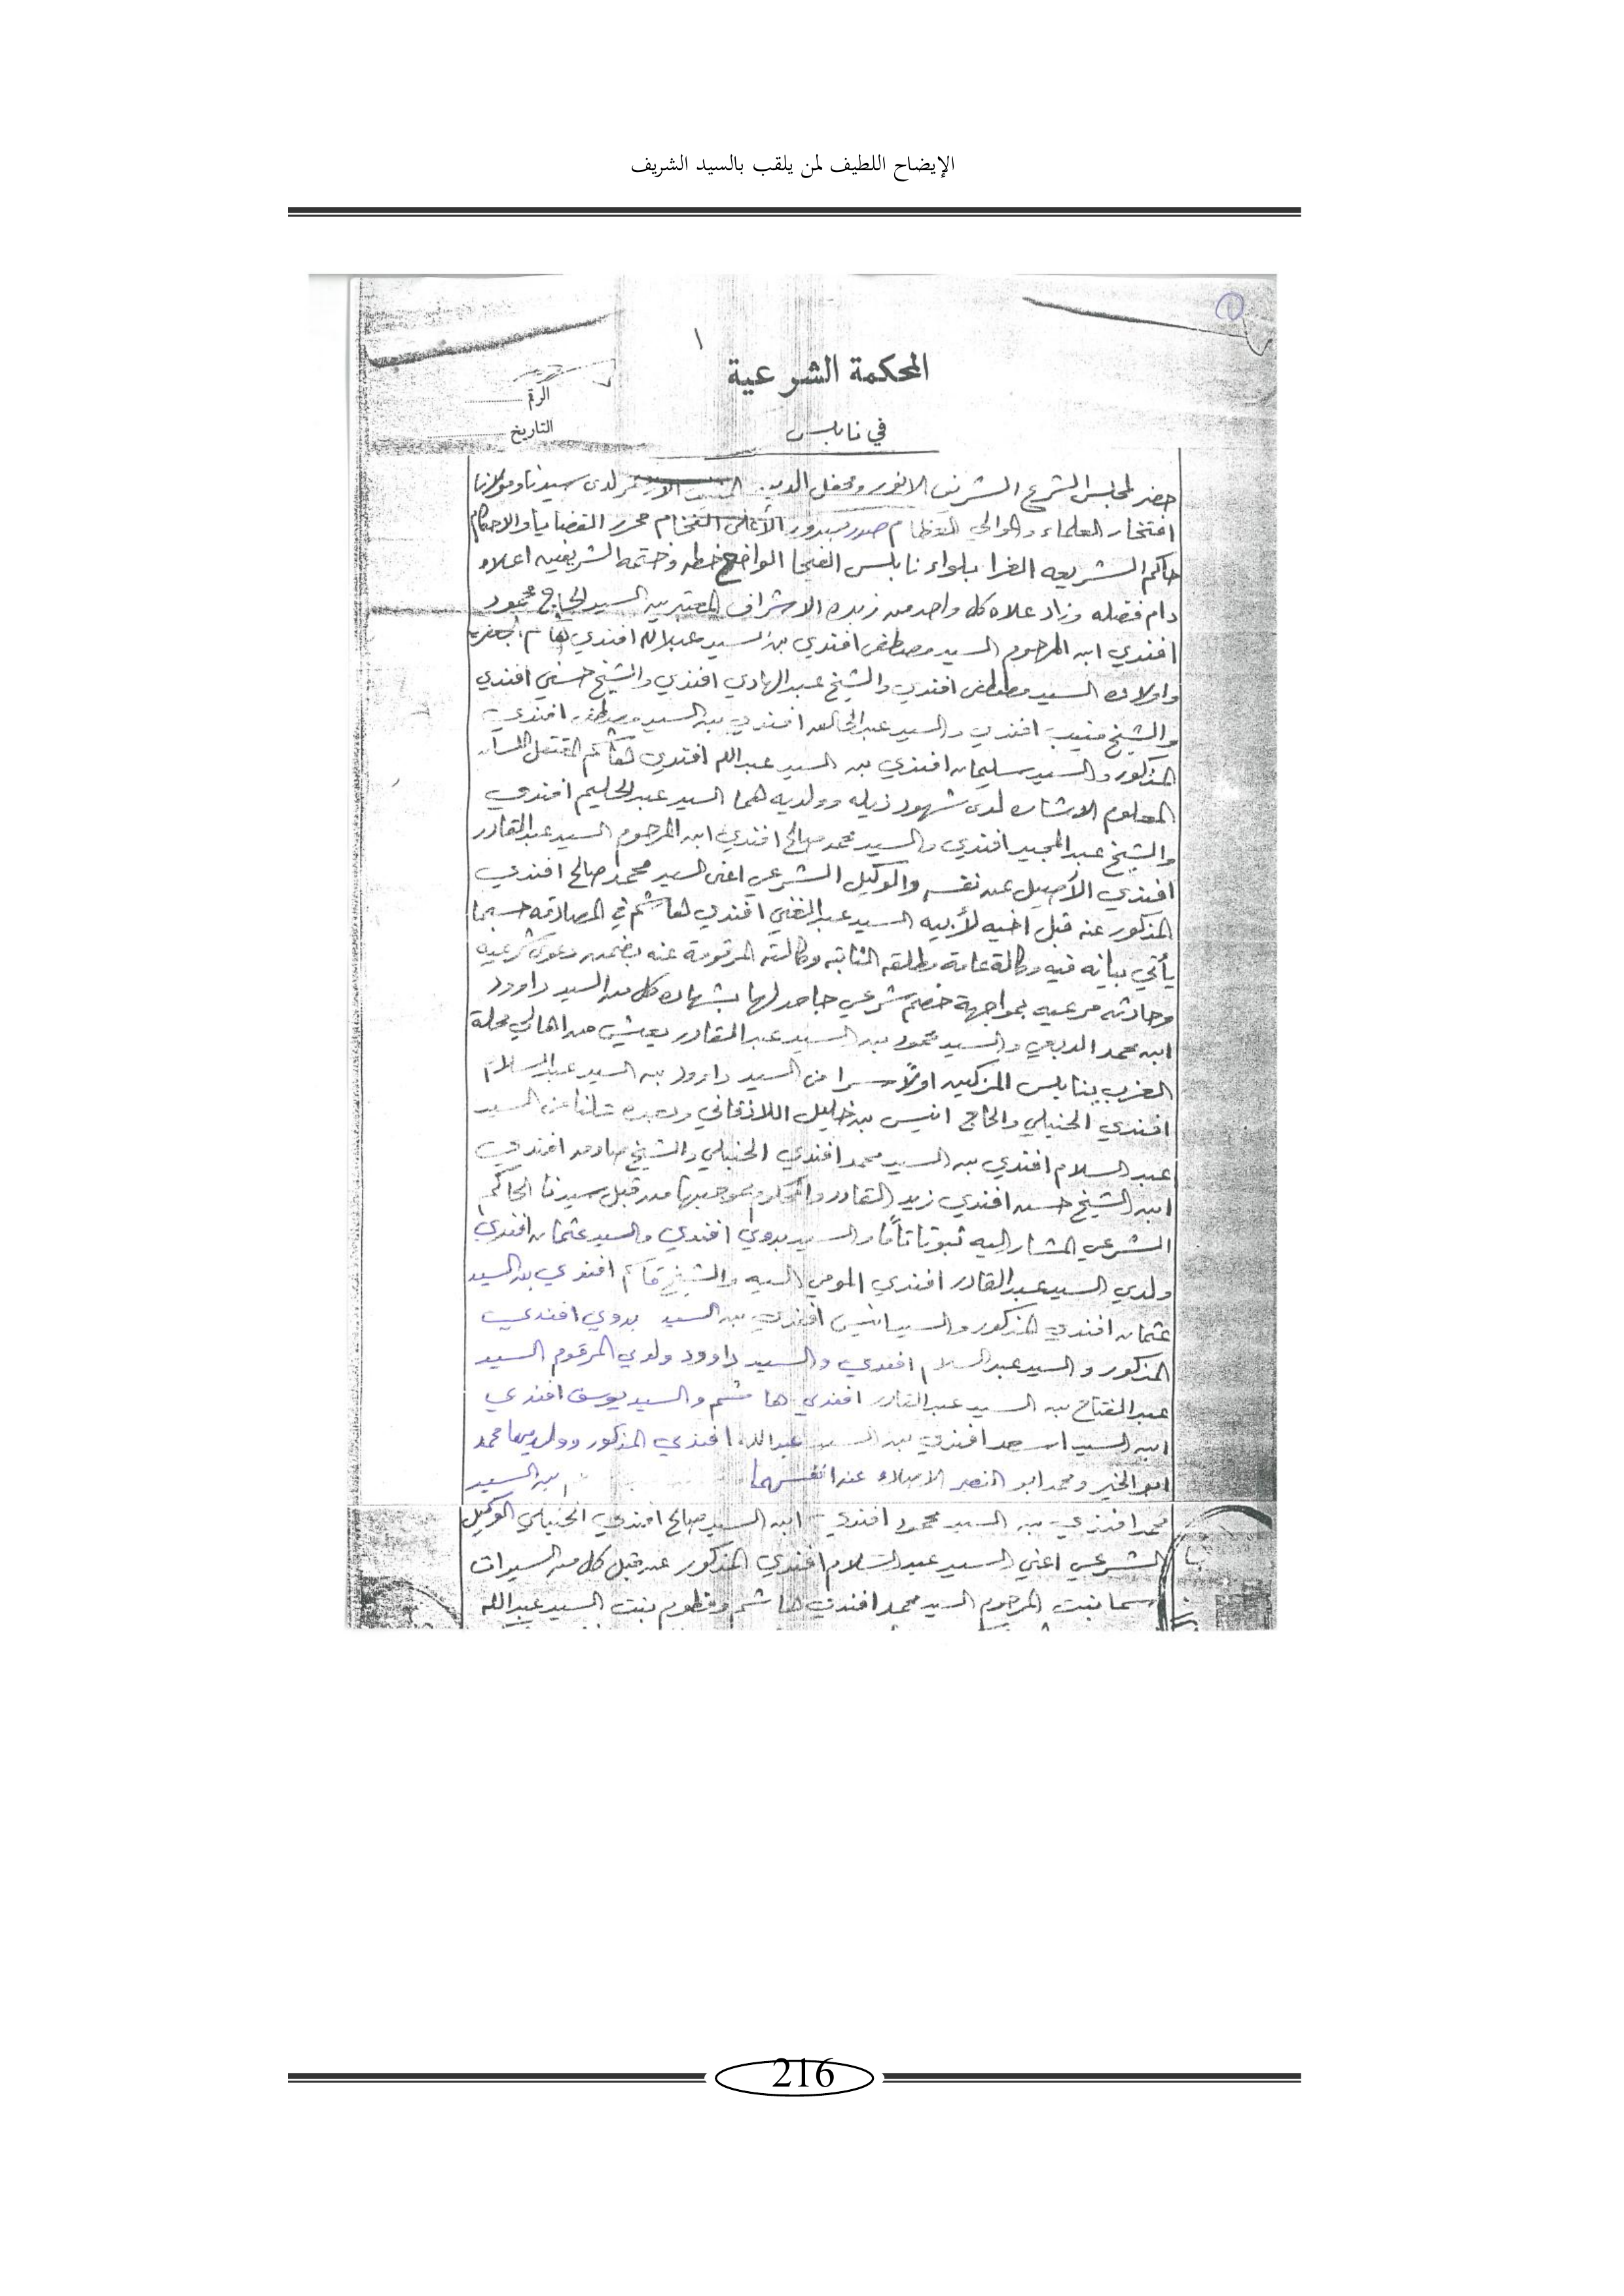 الإيضاح اللطيف لمن يلقب بالسيد الشريف
١
المحكمة الشرعية
الرقم
في نابلس
التاريخ
حضر لمجلس الشرع الشريف الانور ومحفل الدين لدى سيدنا ومولانا
افتخار العلماء والموالي العظام صدور الأعالي الفخام محرر القضايا والاحكام
حاكم الشريعه الغرا بلواء نابلس الفيحا الواضح خطه وختمه الشريفين اعلاه
دام فضله وزاد علاه كل واحد من زبدة الاشراف المعتبرين السيد الحاج محمود
افندي ابن المرحوم السيد مصطفى افندي بن السيد عبدالله افندي هاشم الجعفري
واولاده السيد مصطفى افندي والشيخ عبدالهادي افندي والشيخ حسني افندي
والشيخ منيب افندي والسيد عبدالخالق افندي بن السيد مصطفى افندي
المذكور والسيد سليمان افندي بن السيد عبدالله افندي هاشم المعتقل اللسان
المعلوم الاشاره لدى شهود ذيله وولديه هما السيد عبدالحليم افندي
والشيخ عبدالمجيد افندي والسيد محمد صالح افندي ابن المرحوم السيد عبدالقادر
افندي الأصيل عن نفسه والوكيل الشرعي اعني السيد محمد صالح افندي
المذكور عن قبل اخيه لأبيه السيد عبدالغني افندي هاشم في المصادقه حسبما
يأتي بيانه فيه وكالة عامة مطلقه الثابته وكالته المرقومة عنه بضمن دعوى شرعيه
وحادثه مرعيه بمواجهة خصم شرعي جاحد لها بشهادة كل من السيد داوود
ابن محمد الدبعي والسيد محمود بن السيد عبدالقادر يعيش من اهالي محلة
الغرب بنابلس المزكيين اولاً سرا من السيد داوود بن السيد عبدالسلام
افندي الحنبلي والحاج انيس بن خليل اللاذقاني وبعده علنا من السيد
عبدالسلام افندي بن السيد محمد افندي الحنبلي والشيخ صادق افندي
ابن الشيخ حسن افندي زيد القادر والمحكوم بموجبها من قبل سيدنا الحاكم
الشرعي المشار اليه ثبوتا تاما والسيد بدوي افندي والسيد عثمان افندي
ولدي السيد عبدالقادر افندي المومى اليه والشيخ قاسم افندي بن السيد
عثمان افندي المذكور والسيد انيس افندي بن السيد بدوي افندي
المذكور والسيد عبدالسلام افندي والسيد داوود ولدي المرقوم السيد
عبدالفتاح بن السيد عبدالقادر افندي هاشم والسيد يوسف افندي
ابن السيد اسعد افندي بن السيد عبدالله افندي المذكور وولديهما محمد
ابو الخير ومحمد ابو النصر الاصلاء عن انفسهما بن السيد
محمد افندي بن السيد محمود افندي ابن السيد صالح افندي الحنبلي الوكيل
الشرعي اعني السيد عبدالسلام افندي المذكور عن قبل كل من السيدات
اسما بنت المرحوم السيد محمد افندي هاشم وفطوم بنت السيد عبدالله
216